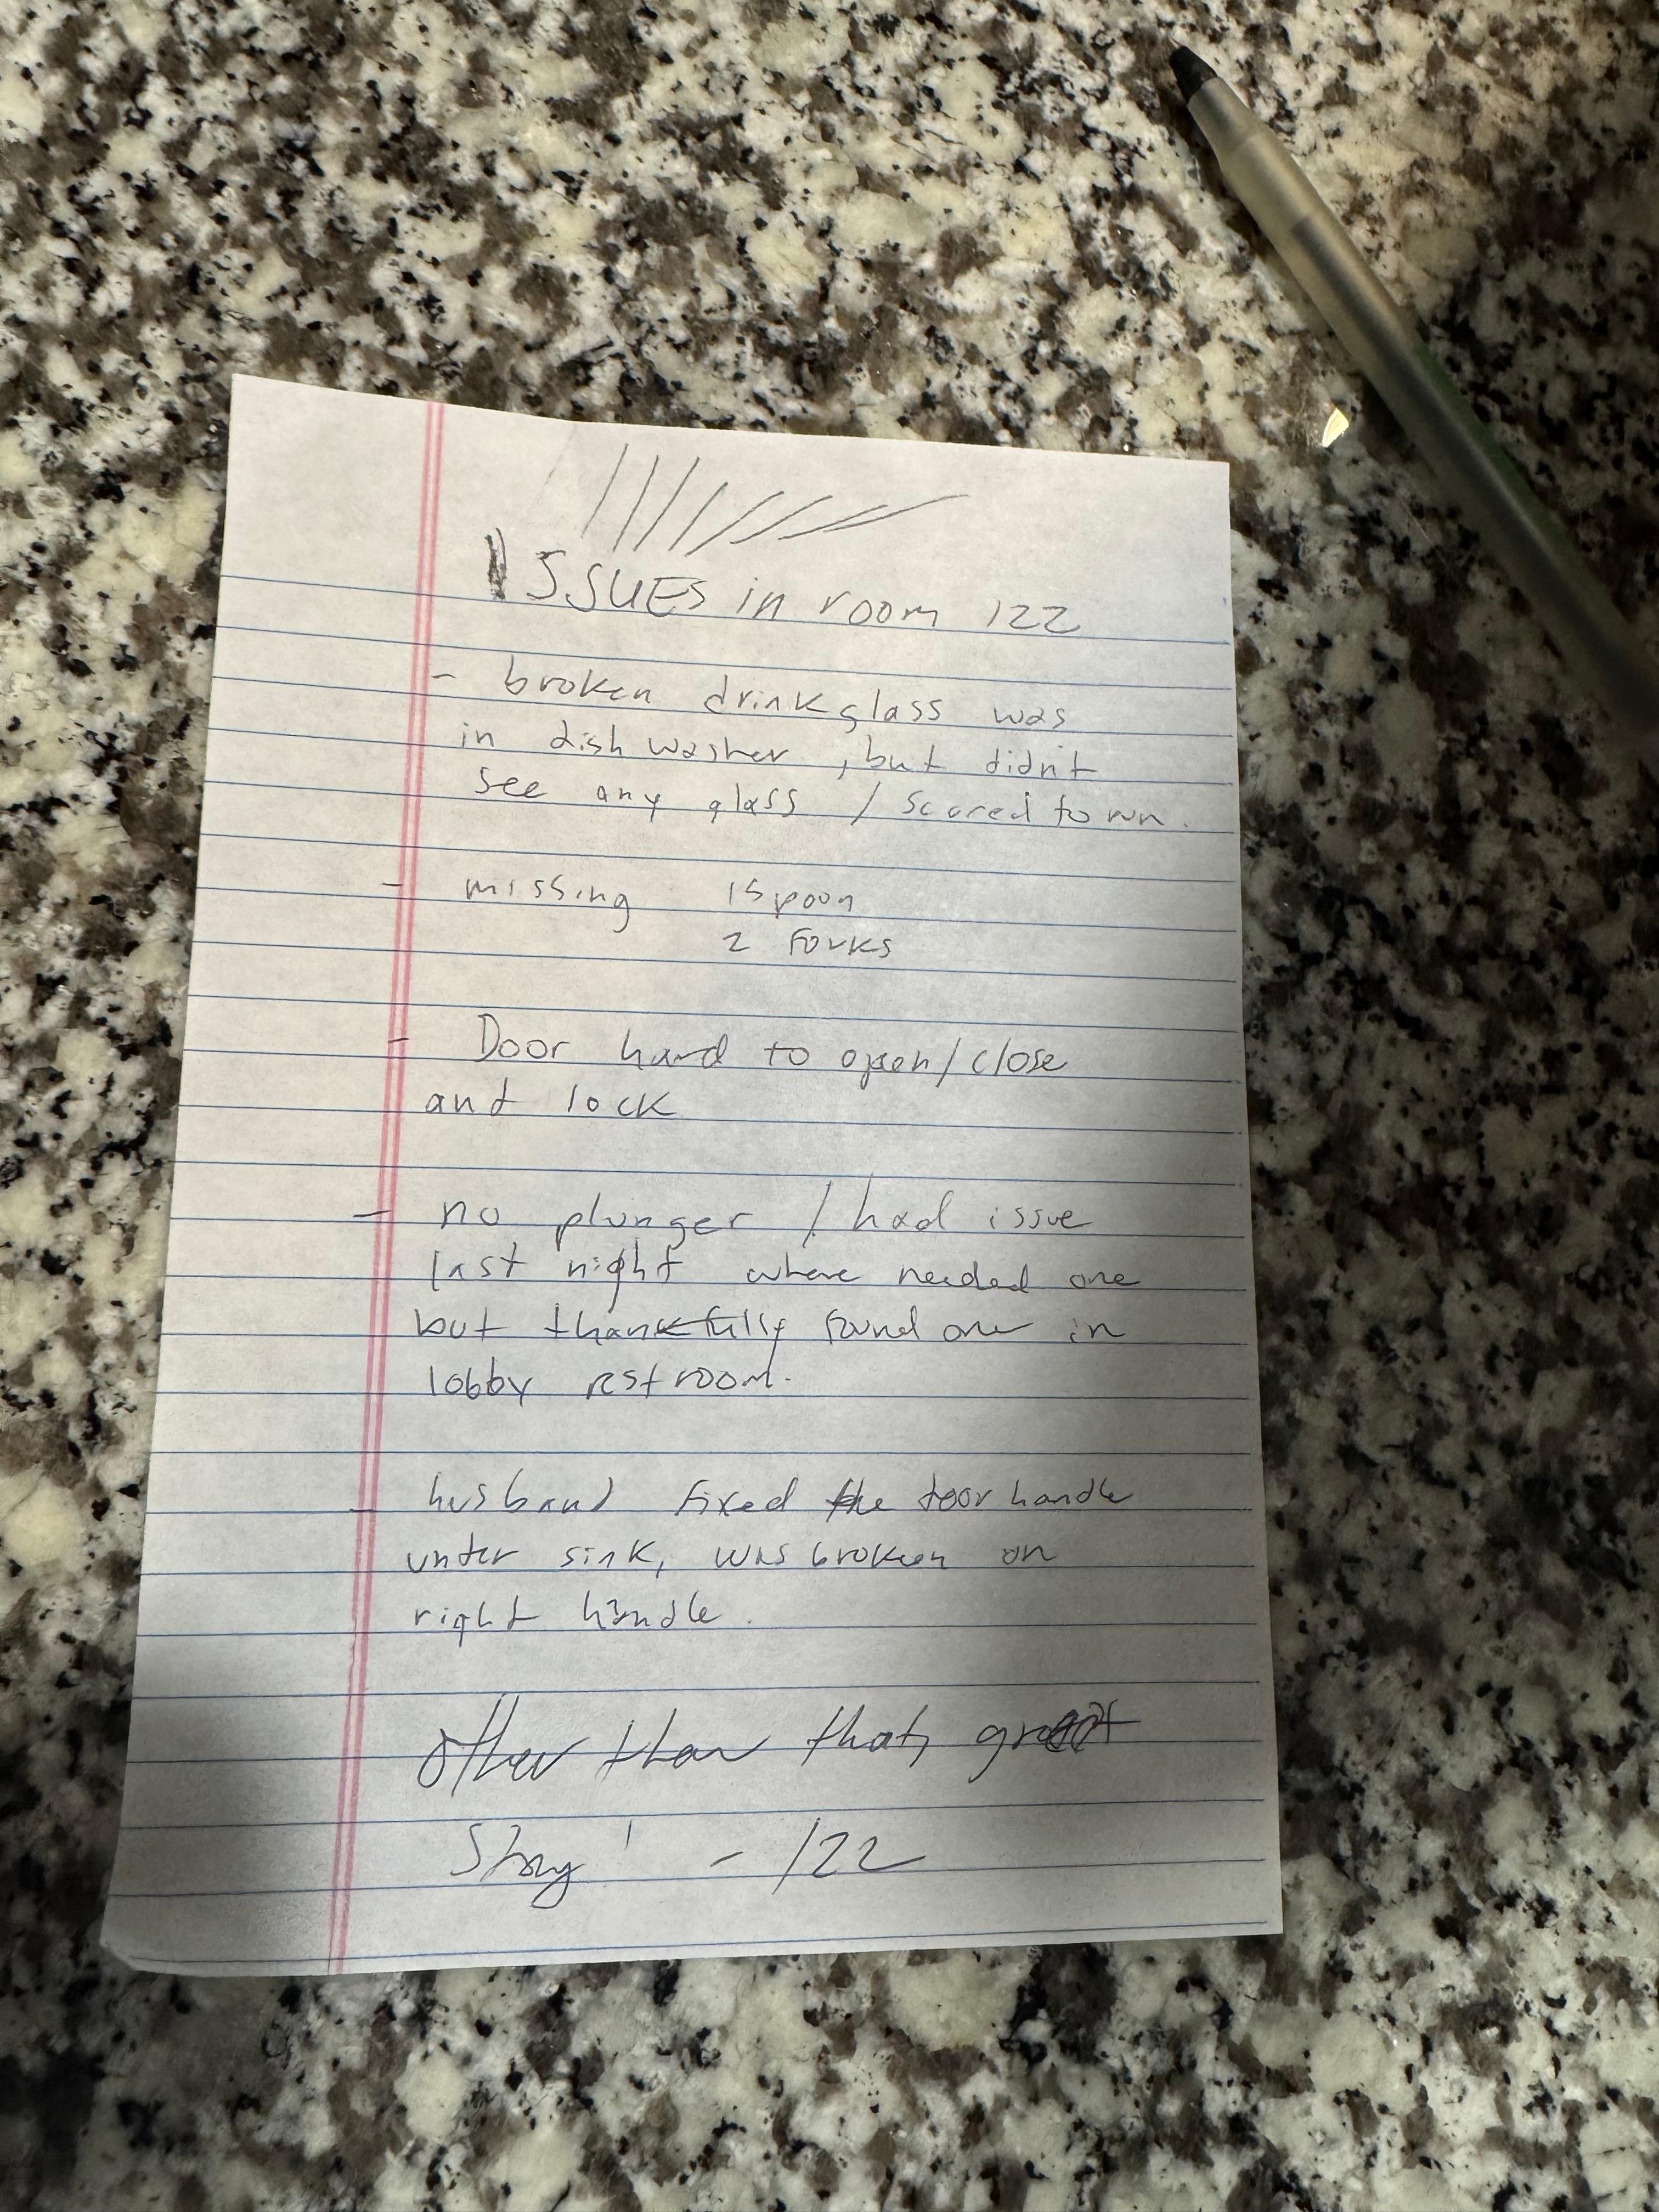 ISSUES in room 122
- broken drink glass was
in dishwasher, but didn't
see any glass / scared to run.
- missing 1 spoon
2 forks
- Door hard to open/close
and lock
- no plunger / had issue
last night where needed one
but thankfully found one in
lobby restroom.
- husband fixed the door handle
under sink, was broken on
right handle.
other than that, great
stay! - 122